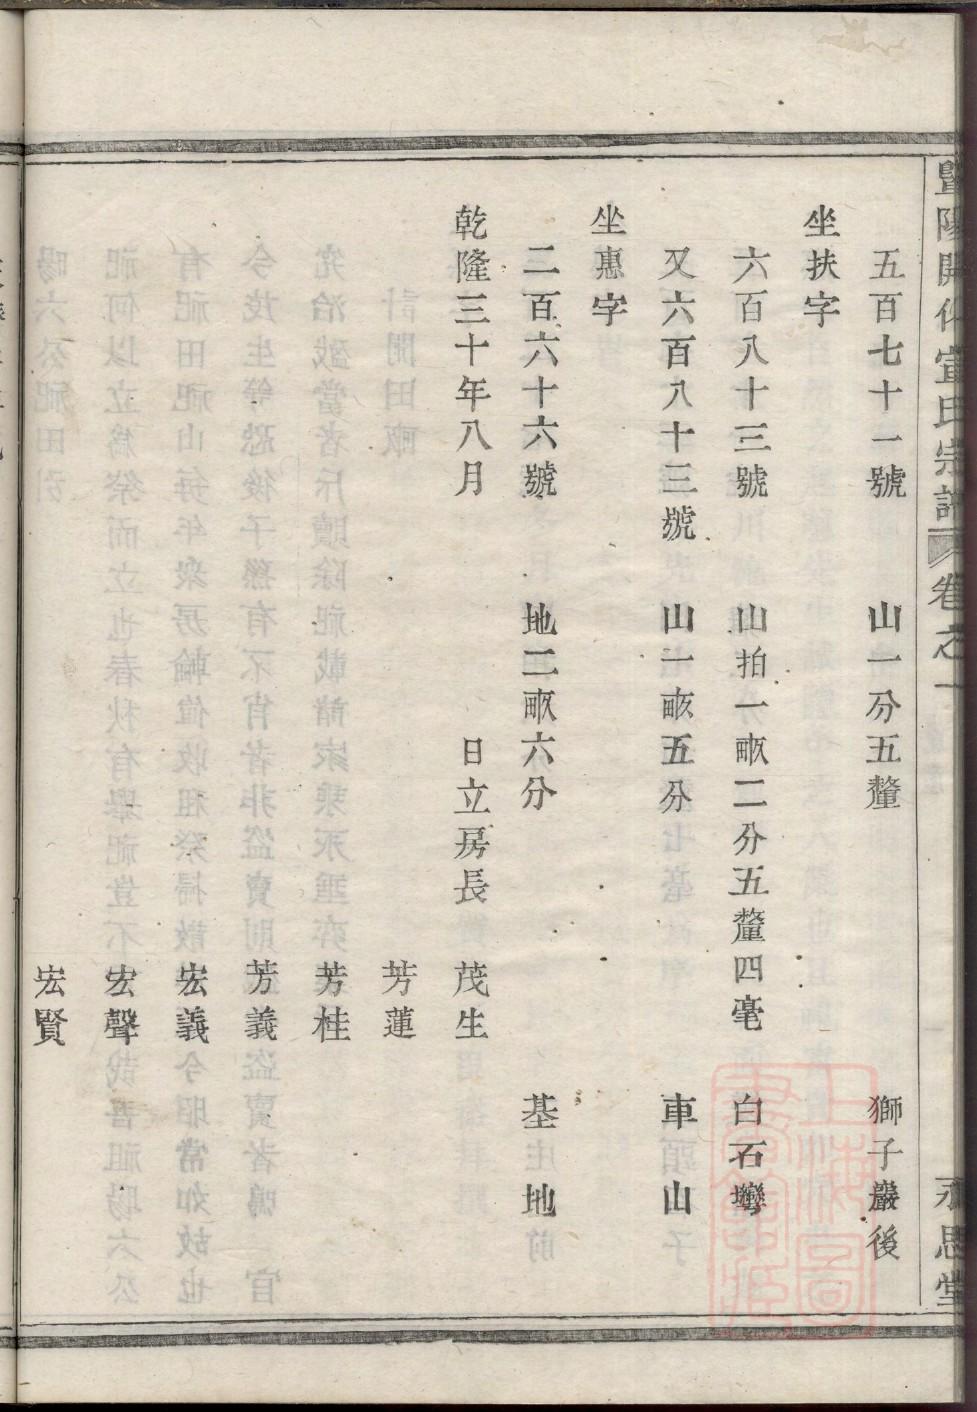 暨陽開化宣氏宗譜 卷之一 永思堂
五百七十一號 山一分五釐 獅子巖後
坐扶字
六百八十三號 山拍一畝二分五釐四毫 白石灣
又六百八十三號 山一畝五分 車山
坐惠字
二百六十六號 地二畝六分 基地
乾隆三十年八月 日立房長 茂生
芳蓮
芳桂
芳義
宏義
宏聲
宏賢
上海圖書館藏